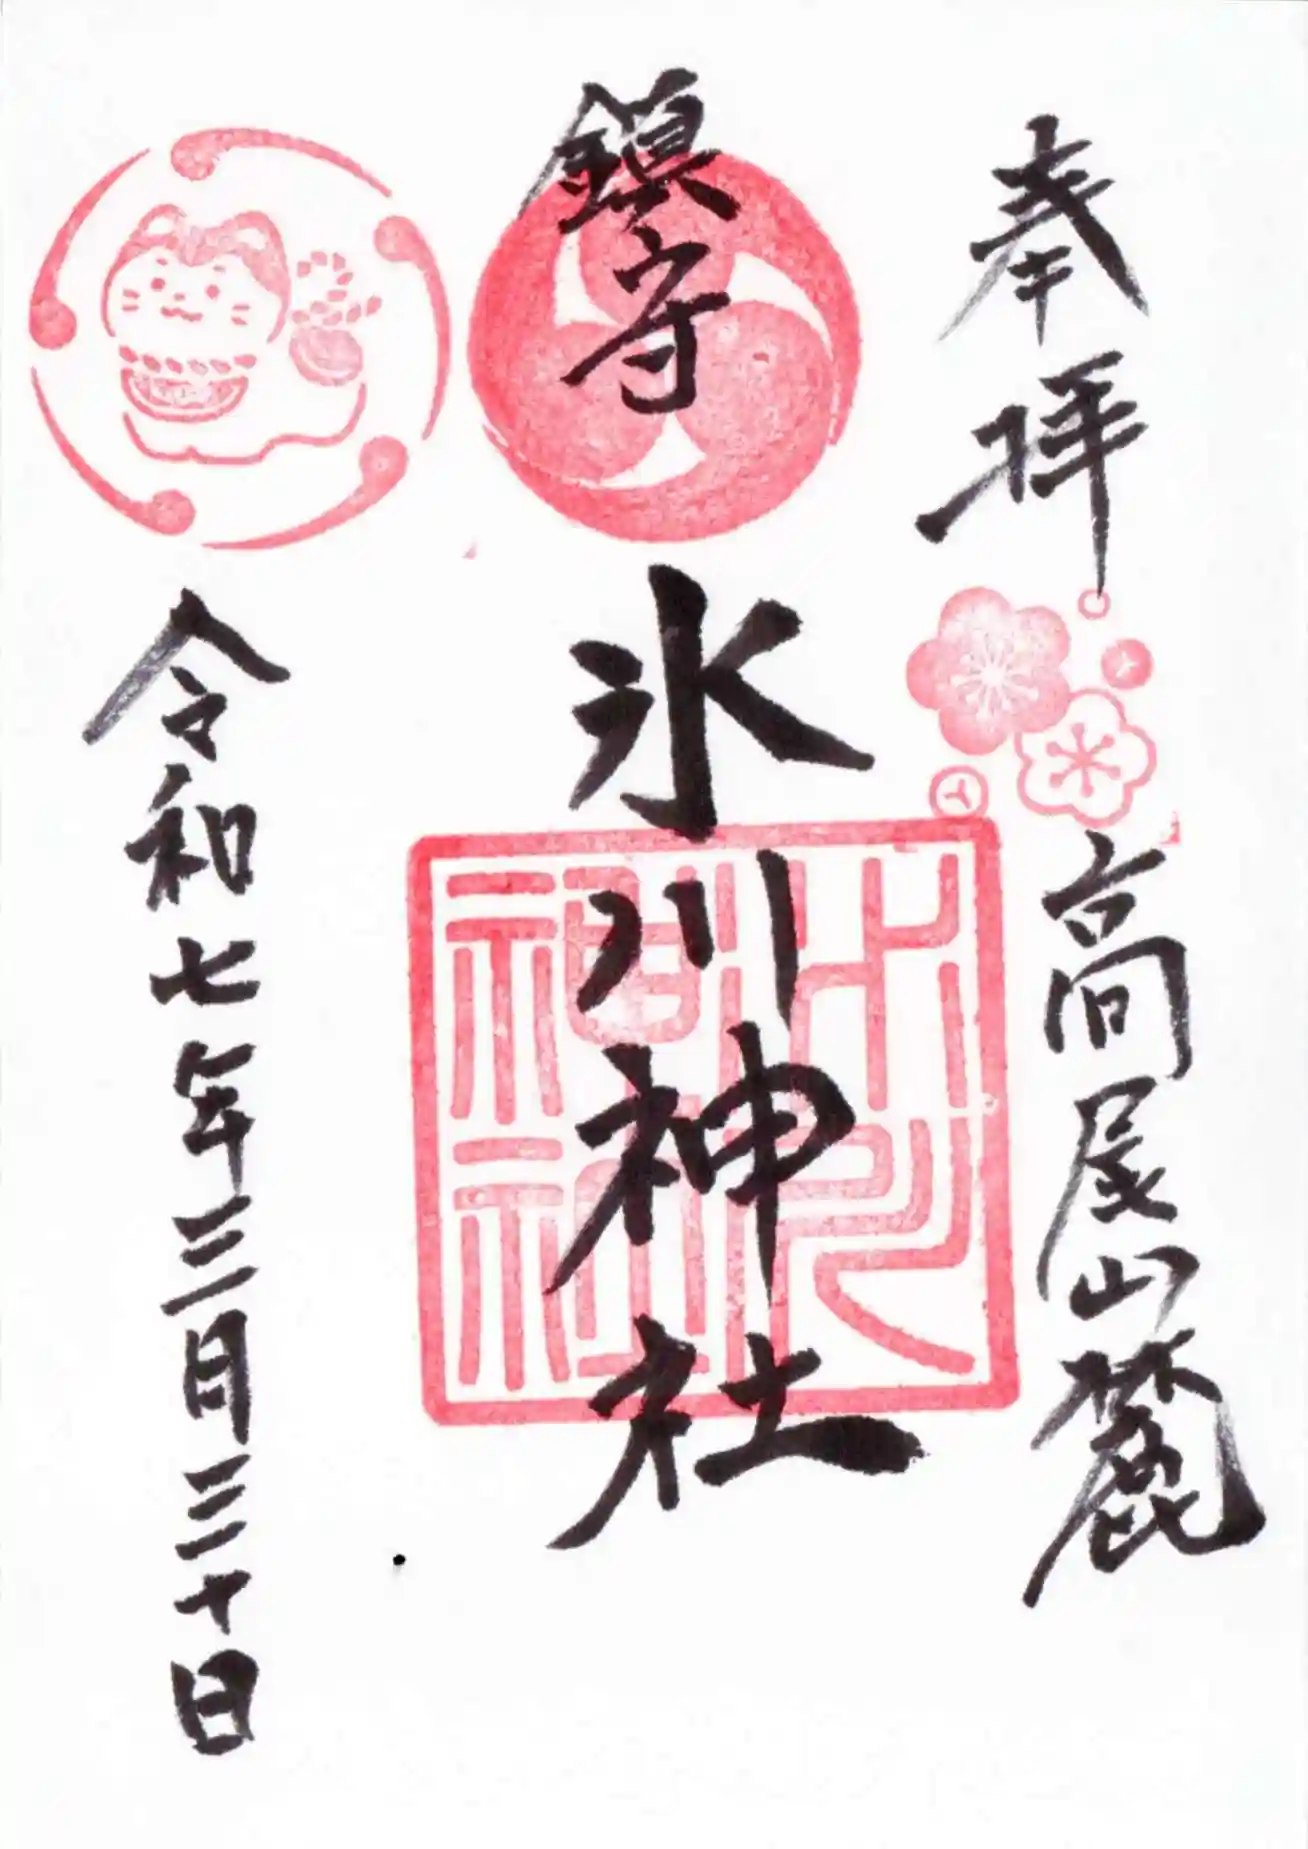 奉拝
高尾山麓
鎮守
氷川神社
氷川
神社
令和七年三月三十日